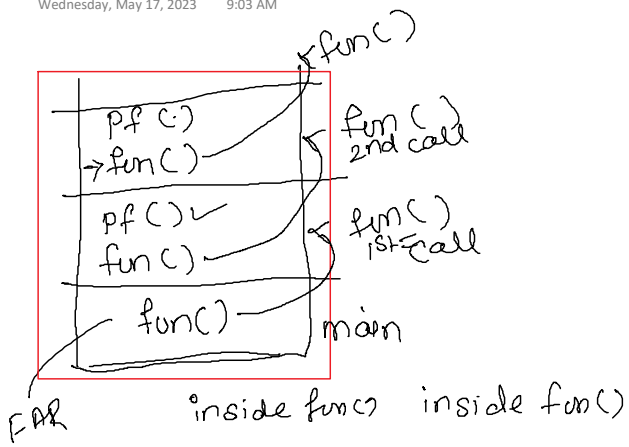 Wednesday, May 17, 2023 9:03 AM
fun()
pf(.)
→fun()
fun()
2nd call
pf()✓
fun()
fun()
1st call
fun()
main
FAR
inside fun() inside fun()